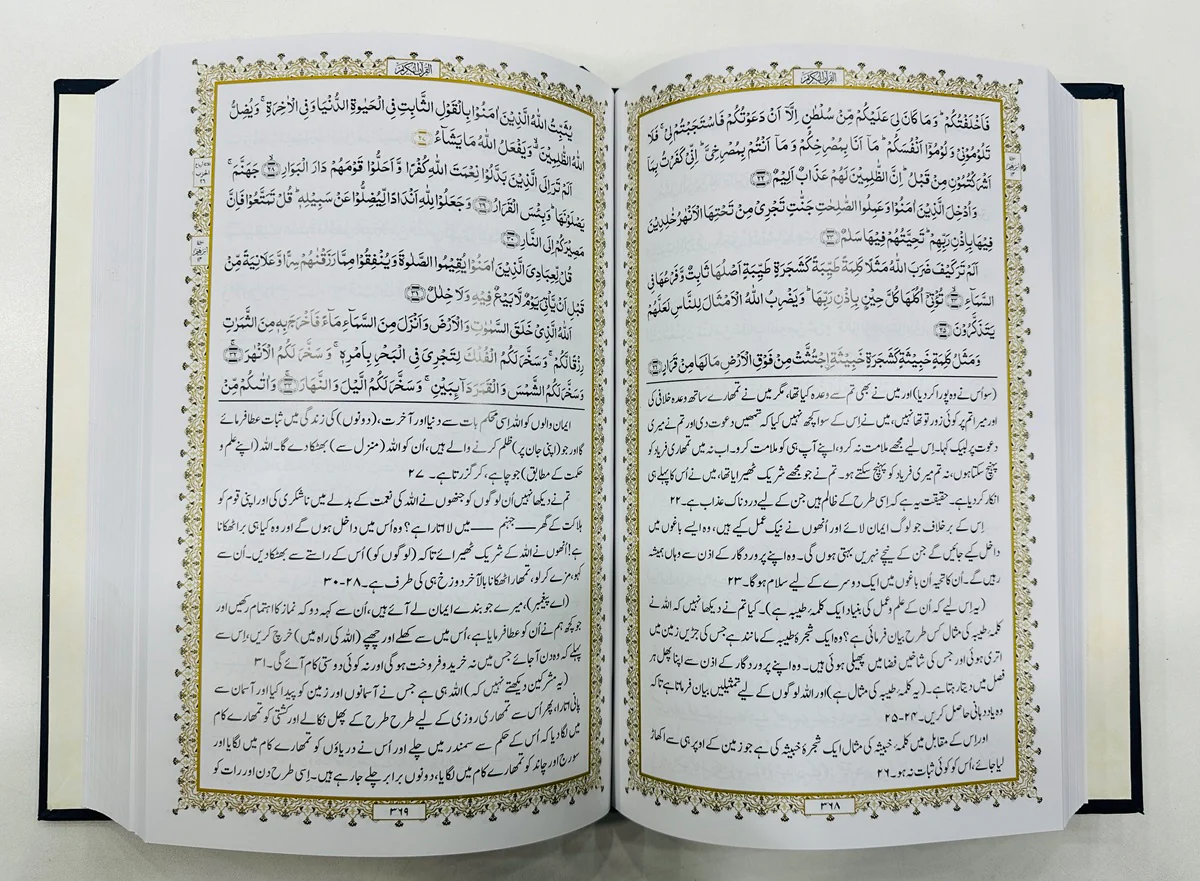 القرآن الکریم
فَاَخْلَفْتُكُمْ ؕ وَمَا كَانَ لِيَ عَلَيْكُمْ مِّنْ سُلْطٰنٍ اِلَّاۤ اَنْ دَعَوْتُكُمْ فَاسْتَجَبْتُمْ لِيْ ۚ فَلَا
تَلُوْمُوْنِيْ وَلُوْمُوْۤا اَنْفُسَكُمْ ؕ مَاۤ اَنَا بِمُصْرِخِكُمْ وَمَاۤ اَنْتُمْ بِمُصْرِخِيَّ ؕ اِنِّيْ كَفَرْتُ بِمَاۤ
اَشْرَكْتُمُوْنِ مِنْ قَبْلُ ؕ اِنَّ الظّٰلِمِيْنَ لَهُمْ عَذَابٌ اَلِيْمٌ ﴿۲۲﴾
وَاُدْخِلَ الَّذِيْنَ اٰمَنُوْا وَعَمِلُوا الصّٰلِحٰتِ جَنّٰتٍ تَجْرِيْ مِنْ تَحْتِهَا الْاَنْهٰرُ خٰلِدِيْنَ
فِيْهَا بِاِذْنِ رَبِّهِمْ ؕ تَحِيَّتُهُمْ فِيْهَا سَلٰمٌ ﴿۲۳﴾
اَلَمْ تَرَ كَيْفَ ضَرَبَ اللهُ مَثَلًا كَلِمَةً طَيِّبَةً كَشَجَرَةٍ طَيِّبَةٍ اَصْلُهَا ثَابِتٌ وَّفَرْعُهَا فِي
السَّمَآءِ ﴿۲۴﴾ تُؤْتِيْۤ اُكُلَهَا كُلَّ حِيْنٍۭ بِاِذْنِ رَبِّهَا ؕ وَيَضْرِبُ اللهُ الْاَمْثَالَ لِلنَّاسِ لَعَلَّهُمْ
يَتَذَكَّرُوْنَ ﴿۲۵﴾
وَمَثَلُ كَلِمَةٍ خَبِيْثَةٍ كَشَجَرَةٍ خَبِيْثَةِ ۣاجْتُثَّتْ مِنْ فَوْقِ الْاَرْضِ مَا لَهَا مِنْ قَرَارٍ ﴿۲۶﴾
(سو اُس نے وہ پورا کر دیا) اور میں نے بھی تم سے وعدہ کیا تھا، مگر میں نے تمھارے ساتھ وعدہ خلافی کی
اور میرا تم پر کوئی زور تو تھا نہیں، میں نے اِس کے سوا کچھ نہیں کیا کہ تمھیں دعوت دی اور تم نے میری
دعوت پر لبیک کہا۔ اِس لیے مجھے ملامت نہ کرو، اپنے آپ ہی کو ملامت کرو۔ اب نہ میں تمھاری فریاد کو
پہنچ سکتا ہوں، نہ تم میری فریاد کو پہنچ سکتے ہو۔ تم نے جو مجھے شریک ٹھیرایا تھا، میں نے اُس کا پہلے ہی
انکار کر دیا ہے۔ حقیقت یہ ہے کہ اِسی طرح کے ظالم ہیں جن کے لیے دردناک عذاب ہے۔ ۲۲
اِس کے برخلاف جو لوگ ایمان لائے اور اُنھوں نے نیک عمل کیے ہیں، وہ ایسے باغوں میں
داخل کیے جائیں گے جن کے نیچے نہریں بہتی ہوں گی۔ وہ اپنے پروردگار کے اذن سے وہاں ہمیشہ
رہیں گے۔ اُن کا تحیہ اُن باغوں میں ایک دوسرے کے لیے سلام ہوگا۔ ۲۳
(یہ اِس لیے کہ اُن کے علم وعمل کی بنیاد ایک کلمۂ طیبہ ہے)۔ کیا تم نے دیکھا نہیں کہ اللہ نے
کلمۂ طیبہ کی مثال کس طرح بیان فرمائی ہے؟ وہ ایک شجرۂ طیبہ کے مانند ہے جس کی جڑیں زمین میں
اتری ہوئی اور جس کی شاخیں فضا میں پھیلی ہوئی ہیں۔ وہ اپنے پروردگار کے اذن سے اپنا پھل ہر
فصل میں دیتا رہتا ہے۔ (یہ کلمۂ طیبہ کی مثال ہے) اور اللہ لوگوں کے لیے تمثیلیں بیان فرماتا ہے تاکہ
وہ یاددہانی حاصل کریں۔ ۲۴-۲۵
اور اِس کے مقابل میں کلمۂ خبیثہ کی مثال ایک شجرۂ خبیثہ کی ہے جو زمین کے اوپر ہی سے اکھاڑ
لیا جائے، اُس کو کوئی ثبات نہ ہو۔ ۲۶
۳۶۸
القرآن الکریم
يُثَبِّتُ اللهُ الَّذِيْنَ اٰمَنُوْا بِالْقَوْلِ الثَّابِتِ فِي الْحَيٰوةِ الدُّنْيَا وَفِي الْاٰخِرَةِ ۚ وَيُضِلُّ
اللهُ الظّٰلِمِيْنَ ۙ وَيَفْعَلُ اللهُ مَا يَشَآءُ ﴿۲۷﴾
اَلَمْ تَرَ اِلَى الَّذِيْنَ بَدَّلُوْا نِعْمَتَ اللهِ كُفْرًا وَّاَحَلُّوْا قَوْمَهُمْ دَارَ الْبَوَارِ ﴿۲۸﴾ جَهَنَّمَ ۚ
يَصْلَوْنَهَا ؕ وَبِئْسَ الْقَرَارُ ﴿۲۹﴾ وَجَعَلُوْا لِلّٰهِ اَنْدَادًا لِّيُضِلُّوْا عَنْ سَبِيْلِهٖ ؕ قُلْ تَمَتَّعُوْا فَاِنَّ
مَصِيْرَكُمْ اِلَى النَّارِ ﴿۳۰﴾
قُلْ لِّعِبَادِيَ الَّذِيْنَ اٰمَنُوْا يُقِيْمُوا الصَّلٰوةَ وَيُنْفِقُوْا مِمَّا رَزَقْنٰهُمْ سِرًّا وَّعَلَانِيَةً مِّنْ
قَبْلِ اَنْ يَّاْتِيَ يَوْمٌ لَّا بَيْعٌ فِيْهِ وَلَا خِلٰلٌ ﴿۳۱﴾
اَللهُ الَّذِيْ خَلَقَ السَّمٰوٰتِ وَالْاَرْضَ وَاَنْزَلَ مِنَ السَّمَآءِ مَآءً فَاَخْرَجَ بِهٖ مِنَ الثَّمَرٰتِ
رِزْقًا لَّكُمْ ۚ وَسَخَّرَ لَكُمُ الْفُلْكَ لِتَجْرِيَ فِي الْبَحْرِ بِاَمْرِهٖ ۚ وَسَخَّرَ لَكُمُ الْاَنْهٰرَ ﴿۳۲﴾
وَسَخَّرَ لَكُمُ الشَّمْسَ وَالْقَمَرَ دَآئِبَيْنِ ۚ وَسَخَّرَ لَكُمُ الَّيْلَ وَالنَّهَارَ ﴿۳۳﴾ وَاٰتٰىكُمْ مِّنْ
ایمان والوں کو اللہ اِسی محکم بات سے دنیا اور آخرت، (دونوں) کی زندگی میں ثبات عطا فرمائے
گا اور جو (اپنی جان پر) ظلم کرنے والے ہیں، اُن کو اللہ (منزل سے) بھٹکا دے گا۔ اللہ (اپنے علم و
حکمت کے مطابق) جو چاہے، کر گزرتا ہے۔ ۲۷
تم نے دیکھا نہیں اُن لوگوں کو جنھوں نے اللہ کی نعمت کے بدلے میں ناشکری کی اور اپنی قوم کو
ہلاکت کے گھر — جہنم — میں لا اتارا ہے؟ وہ اُس میں داخل ہوں گے اور وہ کیا ہی برا ٹھکانا
ہے! اُنھوں نے اللہ کے شریک ٹھیرائے تاکہ (لوگوں کو) اُس کے راستے سے بھٹکا دیں۔ اُن سے
کہو، مزے کر لو، تمھارا ٹھکانا بالآخر دوزخ ہی کی طرف ہے۔ ۲۸-۳۰
(اے پیغمبر)، میرے جو بندے ایمان لے آئے ہیں، اُن سے کہہ دو کہ نماز کا اہتمام رکھیں اور
جو کچھ ہم نے اُن کو عطا فرمایا ہے، اُس میں سے کھلے اور چھپے (اللہ کی راہ میں) خرچ کریں، اِس سے
پہلے کہ وہ دن آ جائے جس میں نہ خرید و فروخت ہوگی اور نہ کوئی دوستی کام آئے گی۔ ۳۱
(یہ مشرکین دیکھتے نہیں کہ) اللہ ہی ہے جس نے آسمانوں اور زمین کو پیدا کیا اور آسمان سے
پانی اتارا، پھر اُس سے تمھاری روزی کے لیے طرح طرح کے پھل نکالے اور کشتی کو تمھارے کام
میں لگا دیا کہ اُس کے حکم سے سمندر میں چلے اور اُس نے دریاؤں کو تمھارے کام میں لگایا اور
سورج اور چاند کو تمھارے کام میں لگایا، دونوں برابر چلے جا رہے ہیں۔ اِسی طرح دن اور رات کو
۳۶۹